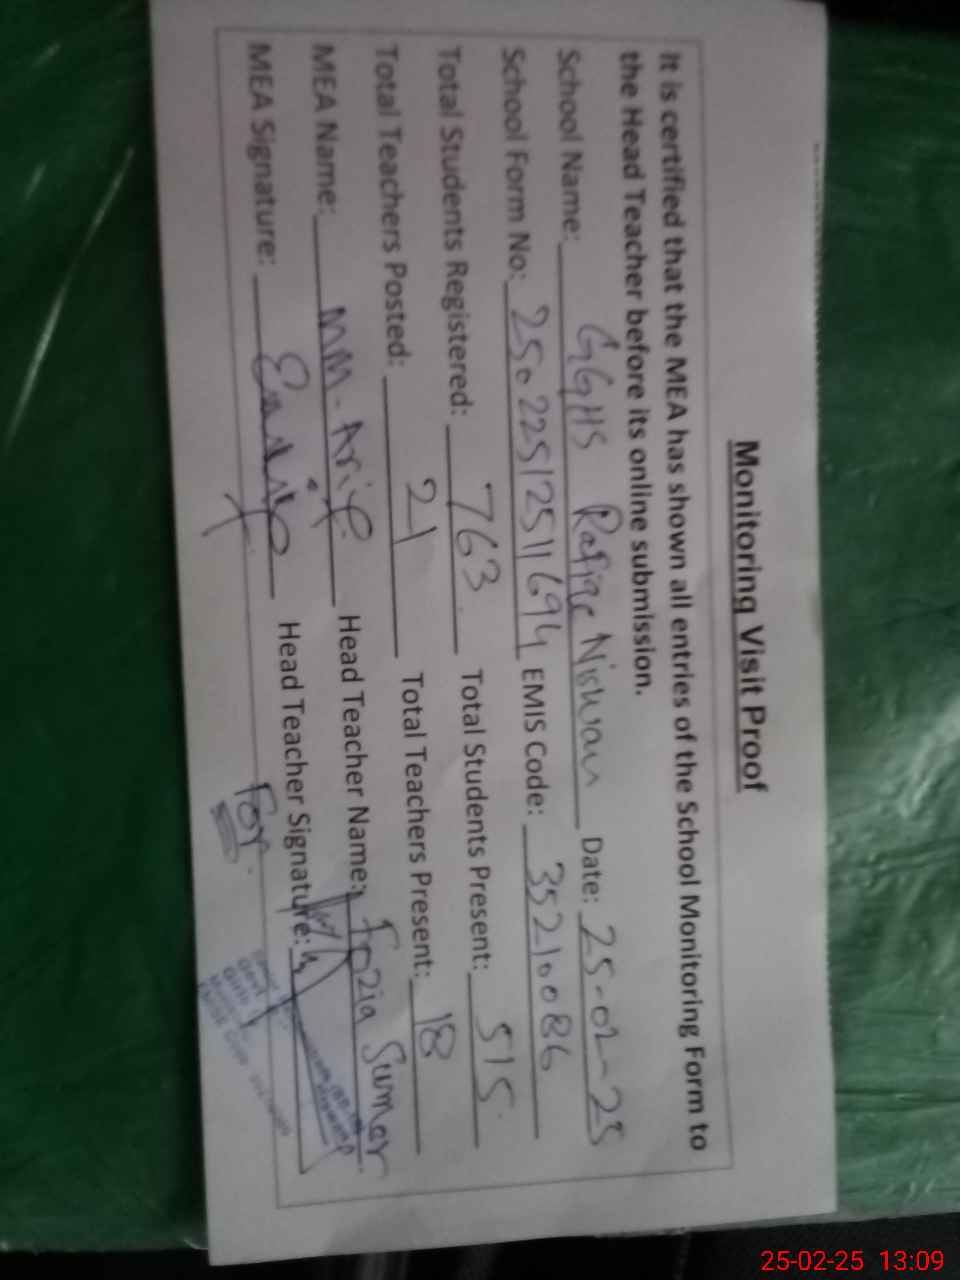 Monitoring Visit Proof
It is certified that the MEA has shown all entries of the School Monitoring Form to
the Head Teacher before its online submission.
School Name: GGHS Rafiqe Niswan Date: 25-02-25
School Form No: 25022512511694 EMIS Code: 35210086
Total Students Registered: 763 Total Students Present: 515
Total Teachers Posted: 21 Total Teachers Present: 18
MEA Name: MM-Arif Head Teacher Name: Fozia Sumer
MEA Signature: Head Teacher Signature:
For
25-02-25 13:09